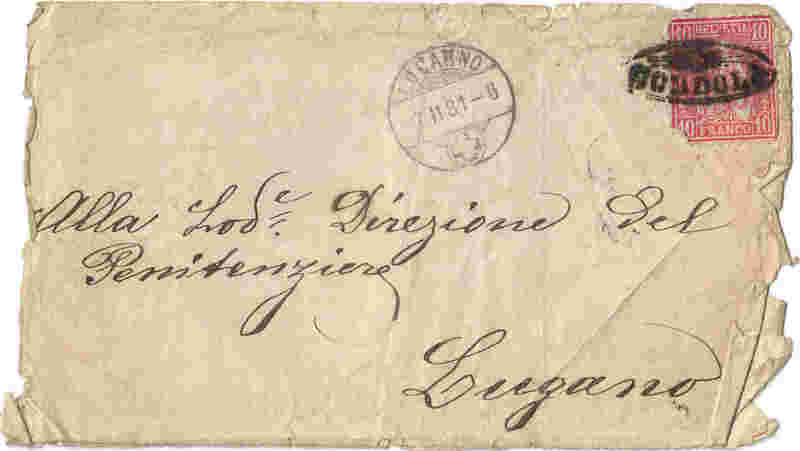 LOCARNO
11 81-6
10 HELVETIA 10
GORDOLA
10 FRANCO 10
Alla Lodᵉ. Direzione del
Penitenziere
Lugano